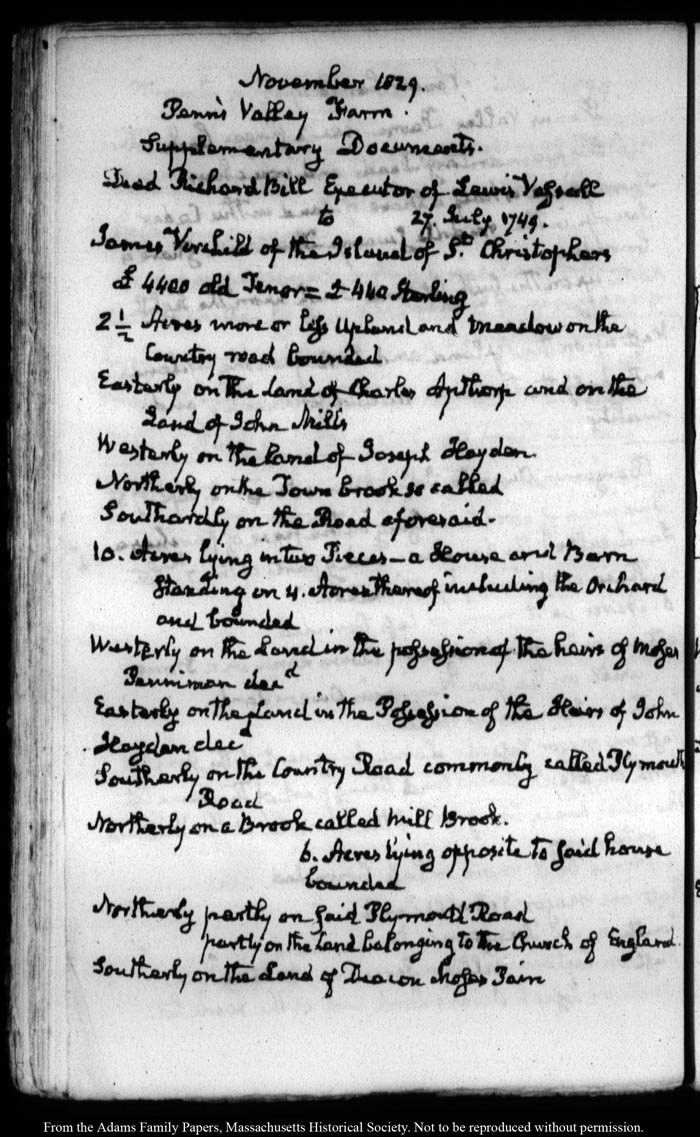 November 1829.
Penn's Valley Farm.
Supplementary Documents.
Deed Richard Bill Executor of Lewis Vassall
to 27. July 1749.
James Verchild of the Island of St. Christophers
£ 4400 old Tenor = £ 440 Sterling
2 1/2 Acres more or less Upland and meadow on the
Country road bounded
Easterly on the Land of Charles Apthorp and on the
Land of John Mills
Westerly on the land of Joseph Hayden.
Northerly on the Town brook so called
Southardly on the Road aforesaid.
10. Acres lying in two Pieces — a House and Barn
Standing on 4. Acres thereof including the Orchard
and bounded
Westerly on the Land in the possession of the heirs of Moses
Penniman decd
Easterly on the land in the Possession of the Heirs of John
Hayden decd
Southerly on the Country Road commonly called Plymouth
Road
Northerly on a Brook called Mill Brook.
6. Acres lying opposite to said house
bounded
Northerly partly on said Plymouth Road
partly on the land belonging to the Church of England.
Southerly on the Land of Deacon Moses Pain
From the Adams Family Papers, Massachusetts Historical Society. Not to be reproduced without permission.